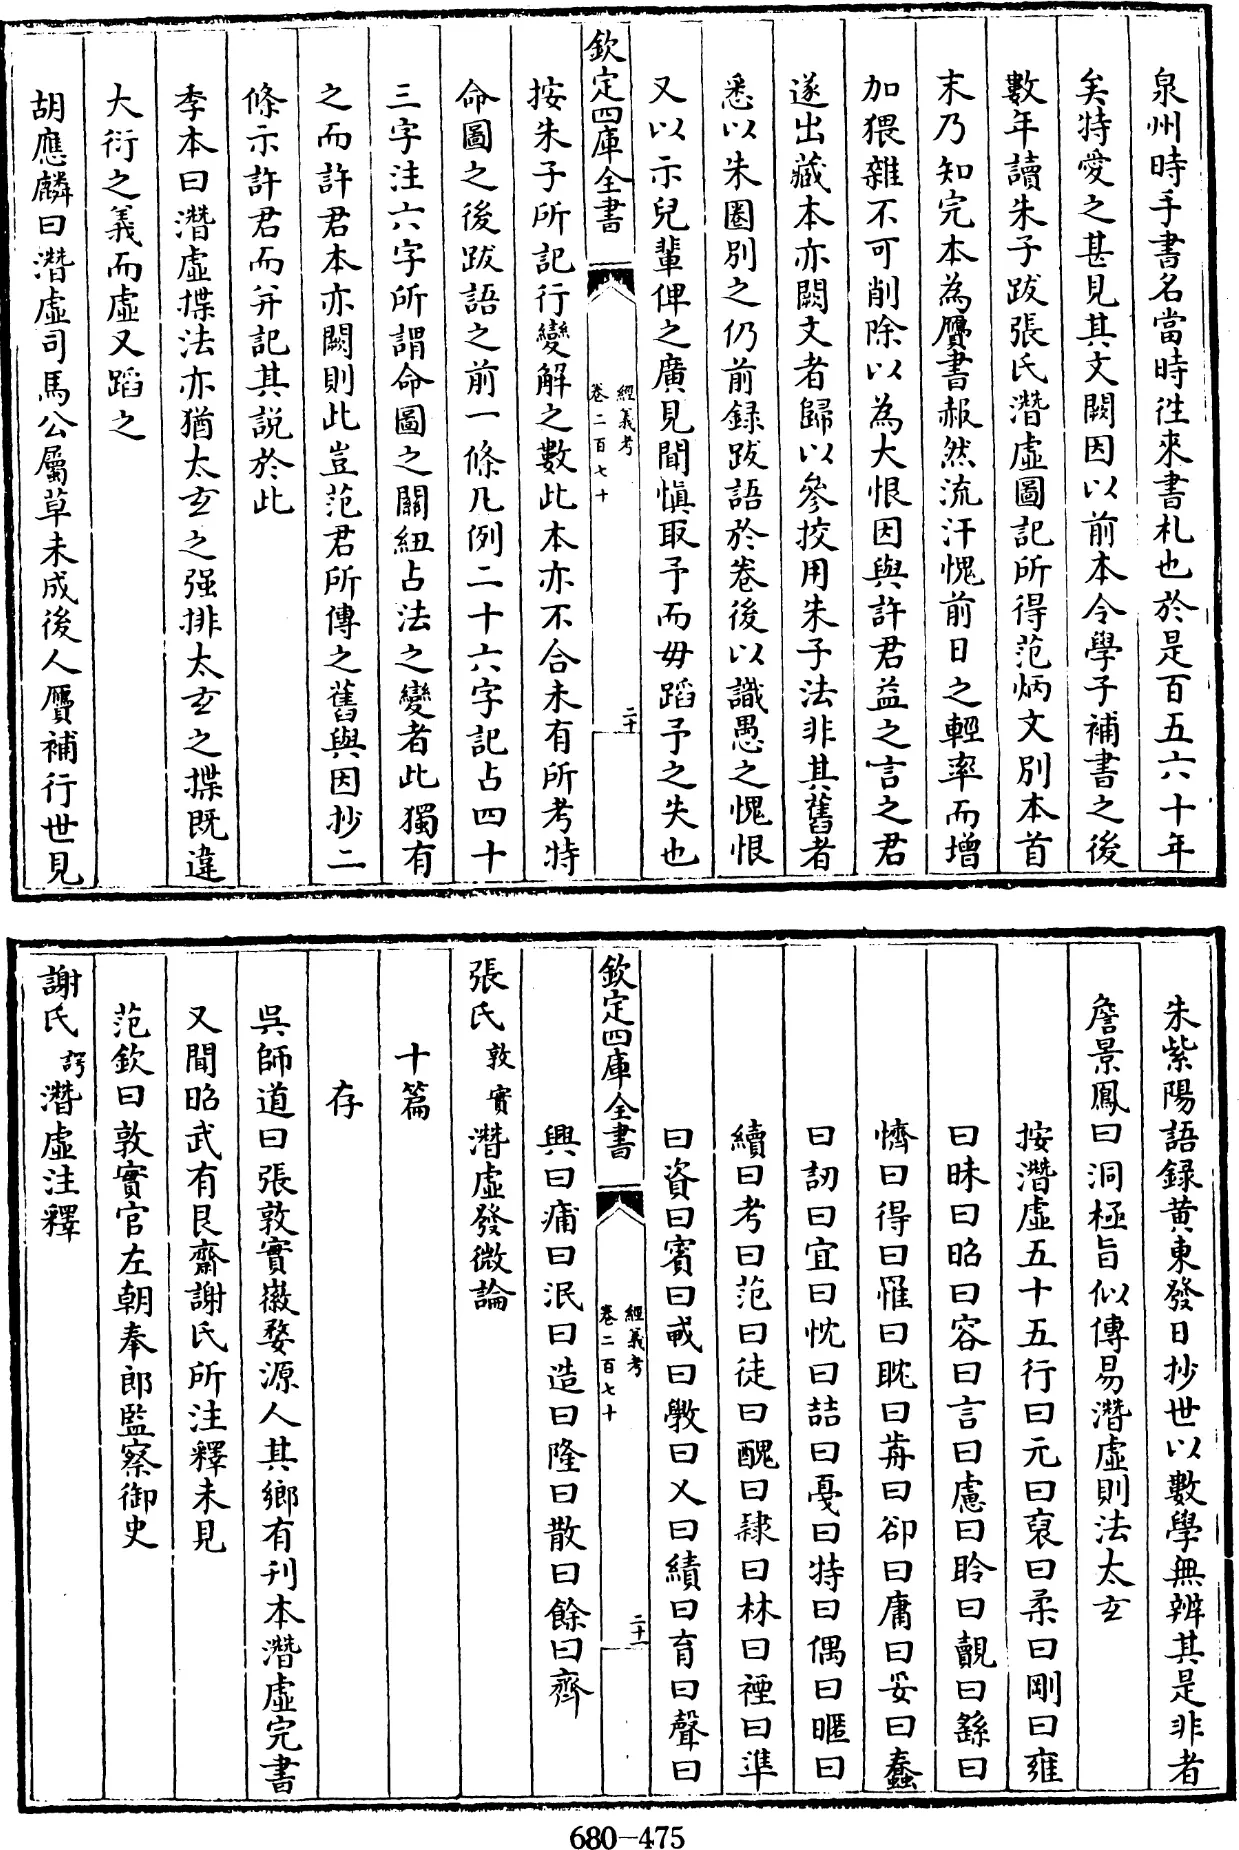 泉州時手書名當時徃來書札也於是百五六十年
矣特愛之甚見其文闕因以前本令學子補書之後
數年讀朱子跋張氏潛虛圖記所得范炳文別本首
末乃知完本為贋書赧然流汗愧前日之輕率而增
加猥雜不可削除以為大恨因與許君益之言之君
遂出藏本亦闕文者歸以參挍用朱子法非其舊者
悉以朱圈別之仍前録跋語於卷後以識愚之愧恨
又以示兒輩俾之廣見聞慎取予而毋蹈予之失也
欽定四庫全書
經義考
卷二百七十
二十
按朱子所記行變解之數此本亦不合未有所考特
命圖之後跋語之前一條凡例二十六字記占四十
三字注六字所謂命圖之關紐占法之變者此獨有
之而許君本亦闕則此豈范君所傳之舊與因抄二
條示許君而并記其説於此
李本曰潛虛揲法亦猶太玄之强排太玄之揲既違
大衍之義而虛又蹈之
胡應麟曰潛虛司馬公屬草未成後人贋補行世見
朱紫陽語録黄東發日抄世以數學無辨其是非者
詹景鳳曰洞極旨似傳易潛虛則法太玄
按潛虛五十五行曰元曰裒曰柔曰剛曰雍
曰昧曰昭曰容曰言曰慮曰聆曰覿曰繇曰
懠曰得曰罹曰耽曰歬曰卻曰庸曰妥曰蠢
曰訒曰宜曰忱曰喆曰戞曰特曰偶曰暱曰
續曰考曰范曰徒曰醜曰隷曰林曰禋曰準
曰資曰賓曰𢧵曰斆曰乂曰績曰育曰聲曰
興曰痡曰泯曰造曰隆曰散曰餘曰齊
欽定四庫全書
經義考
卷二百七十
二十一
張氏敦實潛虛發微論
十篇
存
吳師道曰張敦實徽婺源人其鄉有刊本潛虛完書
又聞昭武有艮齋謝氏所注釋未見
范欽曰敦實官左朝奉郎監察御史
謝氏諤潛虛注釋
680-475